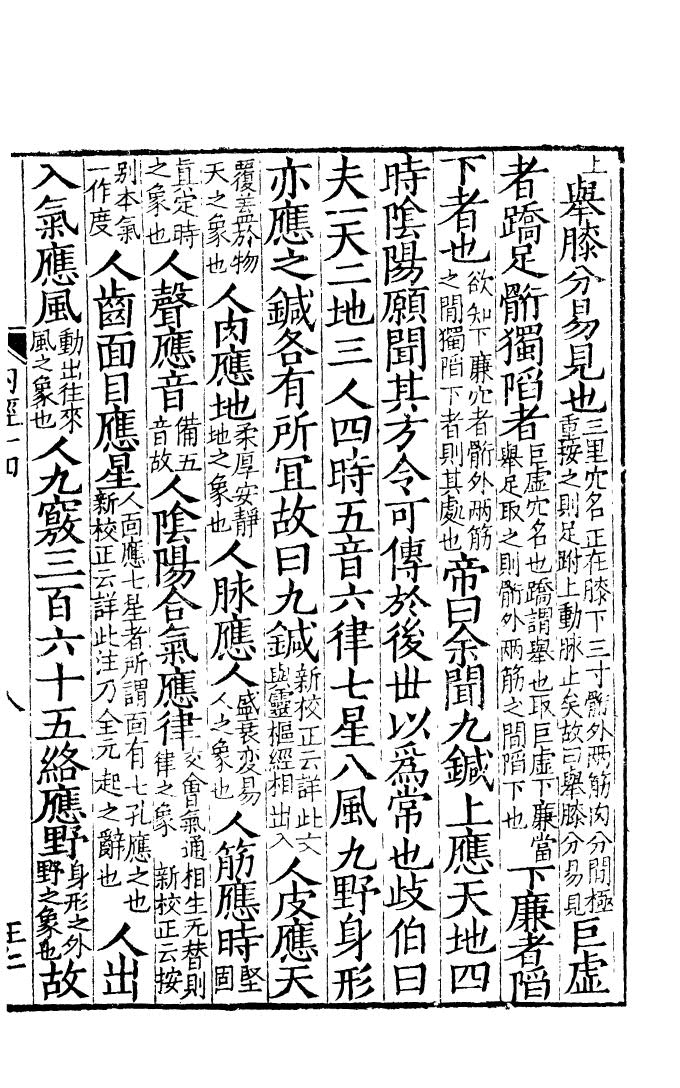 上舉膝分易見也三里穴名正在膝下三寸䯒外兩筋肉分間極重按之則足跗上動脉止矣故曰舉膝分易見巨虚
者蹻足䯒獨陷者巨虚穴名也蹻謂舉也取巨虚下廉當舉足取之則䯒外兩筋之間陷下也下廉者陷
下者也欲知下廉穴者䯒外兩筋之間獨陷下者則其處也帝曰余聞九鍼上應天地四
時陰陽願聞其方令可傳於後世以爲常也歧伯曰
夫一天二地三人四時五音六律七星八風九野身形
亦應之鍼各有所宜故曰九鍼新校正云詳此文與靈樞經相出入人皮應天
覆蓋於物天之象也人肉應地柔厚安靜地之象也人脉應人盛衰変易人之象也人筋應時堅固
真定時之象也人聲應音備五音故人陰陽合氣應律交會氣通相生无替則律之象新校正云按
别本氣一作度人齒面目應星人面應七星者所謂面有七孔應之也新校正云詳此注乃全元起之辭也人出
入氣應風動出往來風之象也人九竅三百六十五絡應野身形之外野之象也故